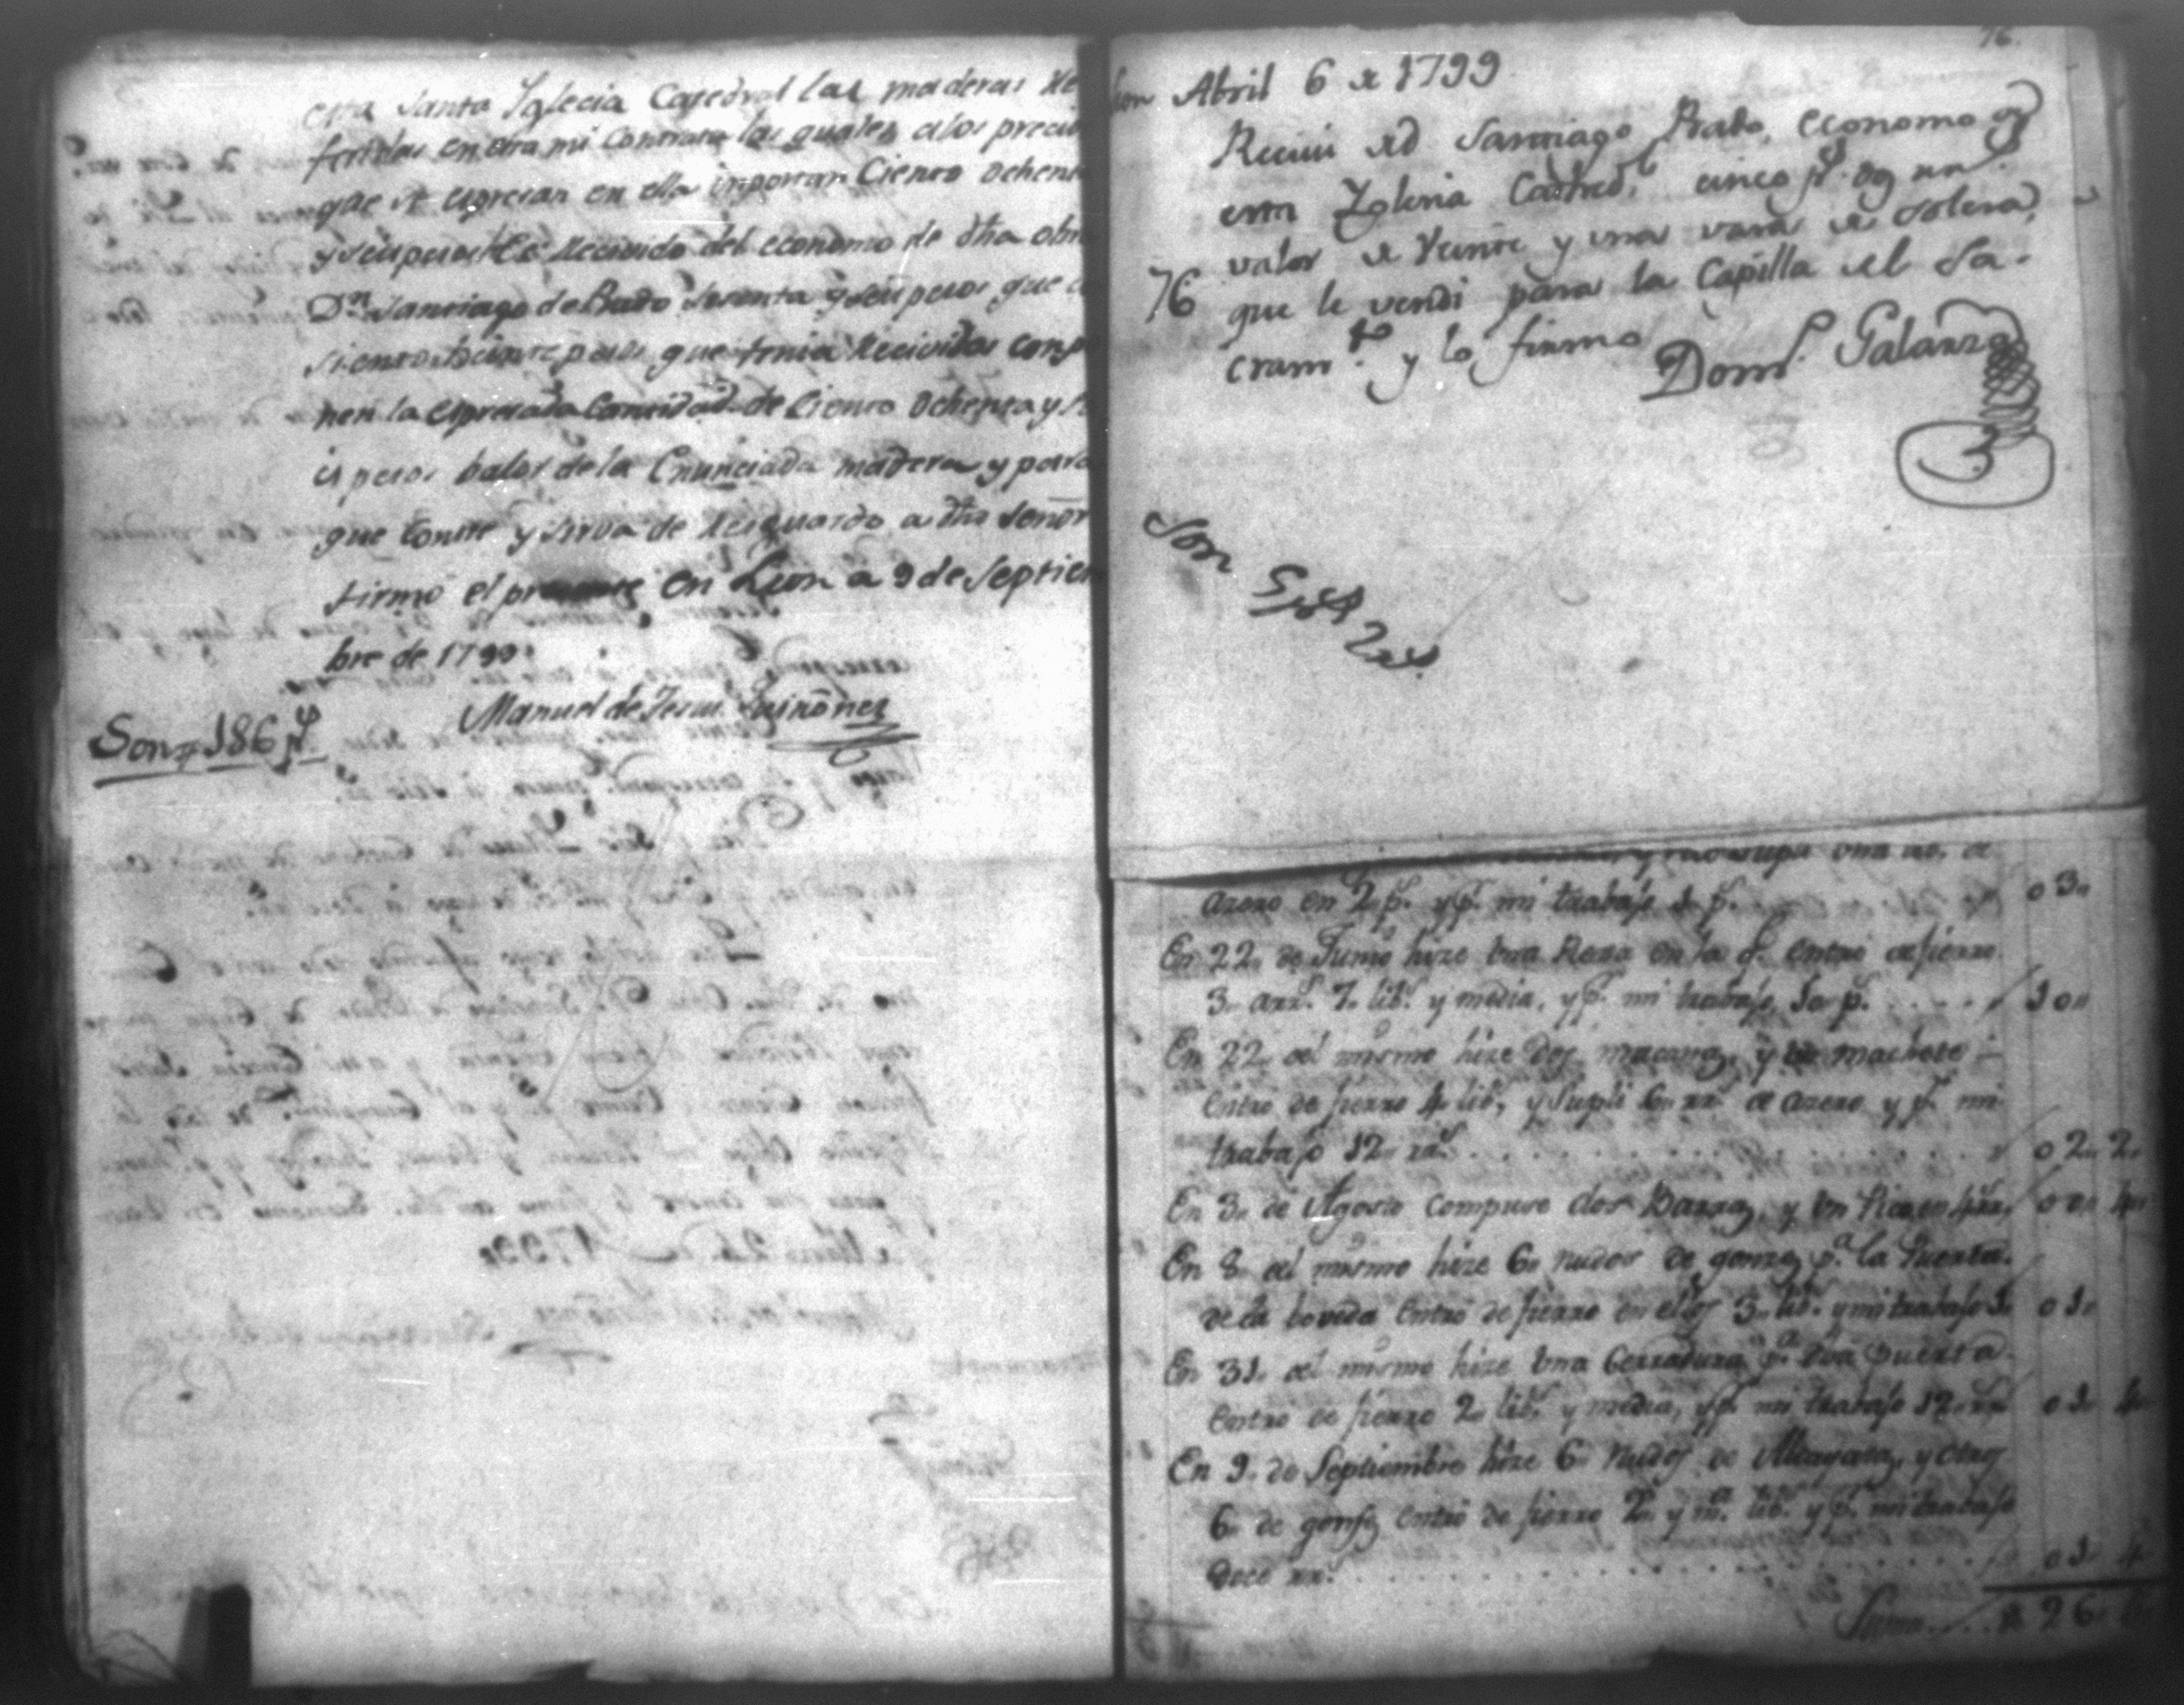 esta Santa Iglecia Catedral las maderas re
feridas en otra mi Contrata las quales a los precios
que se espresan en ella inportan Ciento ochenta
y seis pesos He Recivido del economo de dha obra
Dn. Santiago de Prado sesenta y seis pesos que a
siento beinte pesos que tenia Recividos compo
nen la espresada Cantidad de Ciento Ochenta y se
is pesos balor de la Enunciada madera y para
que Conste y sirva de Resguardo a dho Señor
firmo el presente en Leon a 9 de Septiem
bre de 1799.
Manuel de Jesus Quiñones
Son 186 ps
76.
Leon Abril 6 de 1799
Recivi de d Santiago Prado, economo de
esta Yglesia Cathedl. cinco ps. dos rrs.
valor de veinte y una varas de solera,
76 que le vendi para la Capilla del Sa-
cramto. y lo firmo
Domo. Galarza
Son 5 ps 2 rrs
una de
azero en 2 ps. y pr. mi trabajo 1 p. 03"
En 22" de Junio hize una Rexa en la q. entro de fierro
3" arrs. 7" libs. y media, y pr. mi trabajo, 10 ps. 10"
En 22" del mismo hize dos macanas, y un machete
Entro de fierro 4" libs, y supli 6" rrs de azero y pr. mi
trabajo 12" rrs. 02" 2"
En 3" de Agosto compuse dos Barras, y un Pico en 4 rrs, 00" 4"
En 8" del mismo hize 6" nudos de gonzes pa. la Puerta
de la boveda Entro de fierro en ellos 3" libs. y mi trabajo 1" 01"
En 31" del mismo hize una Cerradura pa. dha Puerta
Entro de fierro 2" libs. y media, y pr. mi trabajo 12" rrs 01" 4"
En 9" de Septiembre hize 6" nudos de Alcayatas, y otros
6" de gonses entro de fierro 2" y ma. libs. y pr. mi trabajo
doce rrs. 01" 4"
Suma 26"